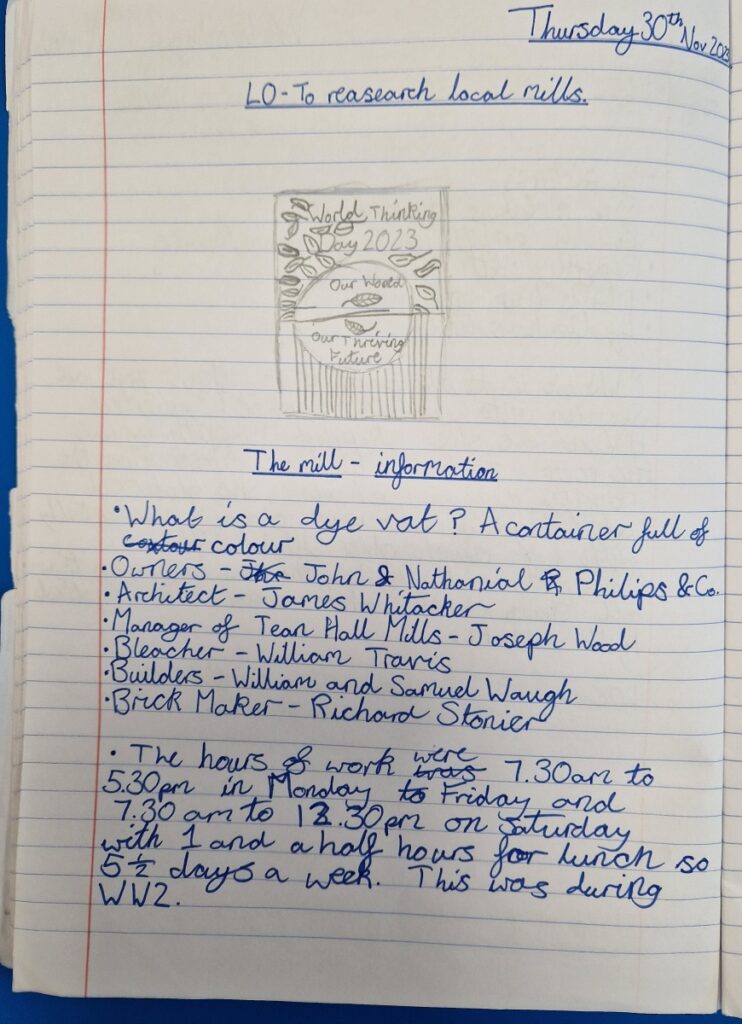 Thursday 30th Nov 2023
LO-To reasearch local mills.
World Thinking
Day 2023
Our World
Our Thriving
Future
The mill - information
• What is a dye vat? A container full of
colour
• Owners - John & Nathanial Philips & Co.
• Architect - James Whitacker
• Manager of Tean Hall Mills - Joseph Wood
• Bleacher - William Travis
• Builders - William and Samuel Waugh
• Brick Maker - Richard Stonier
• The hours of work were was 7.30am to
5.30pm in Monday to Friday and
7.30 am to 12.30pm on Saturday
with 1 and a half hours for lunch so
5½ days a week. This was during
WW2.